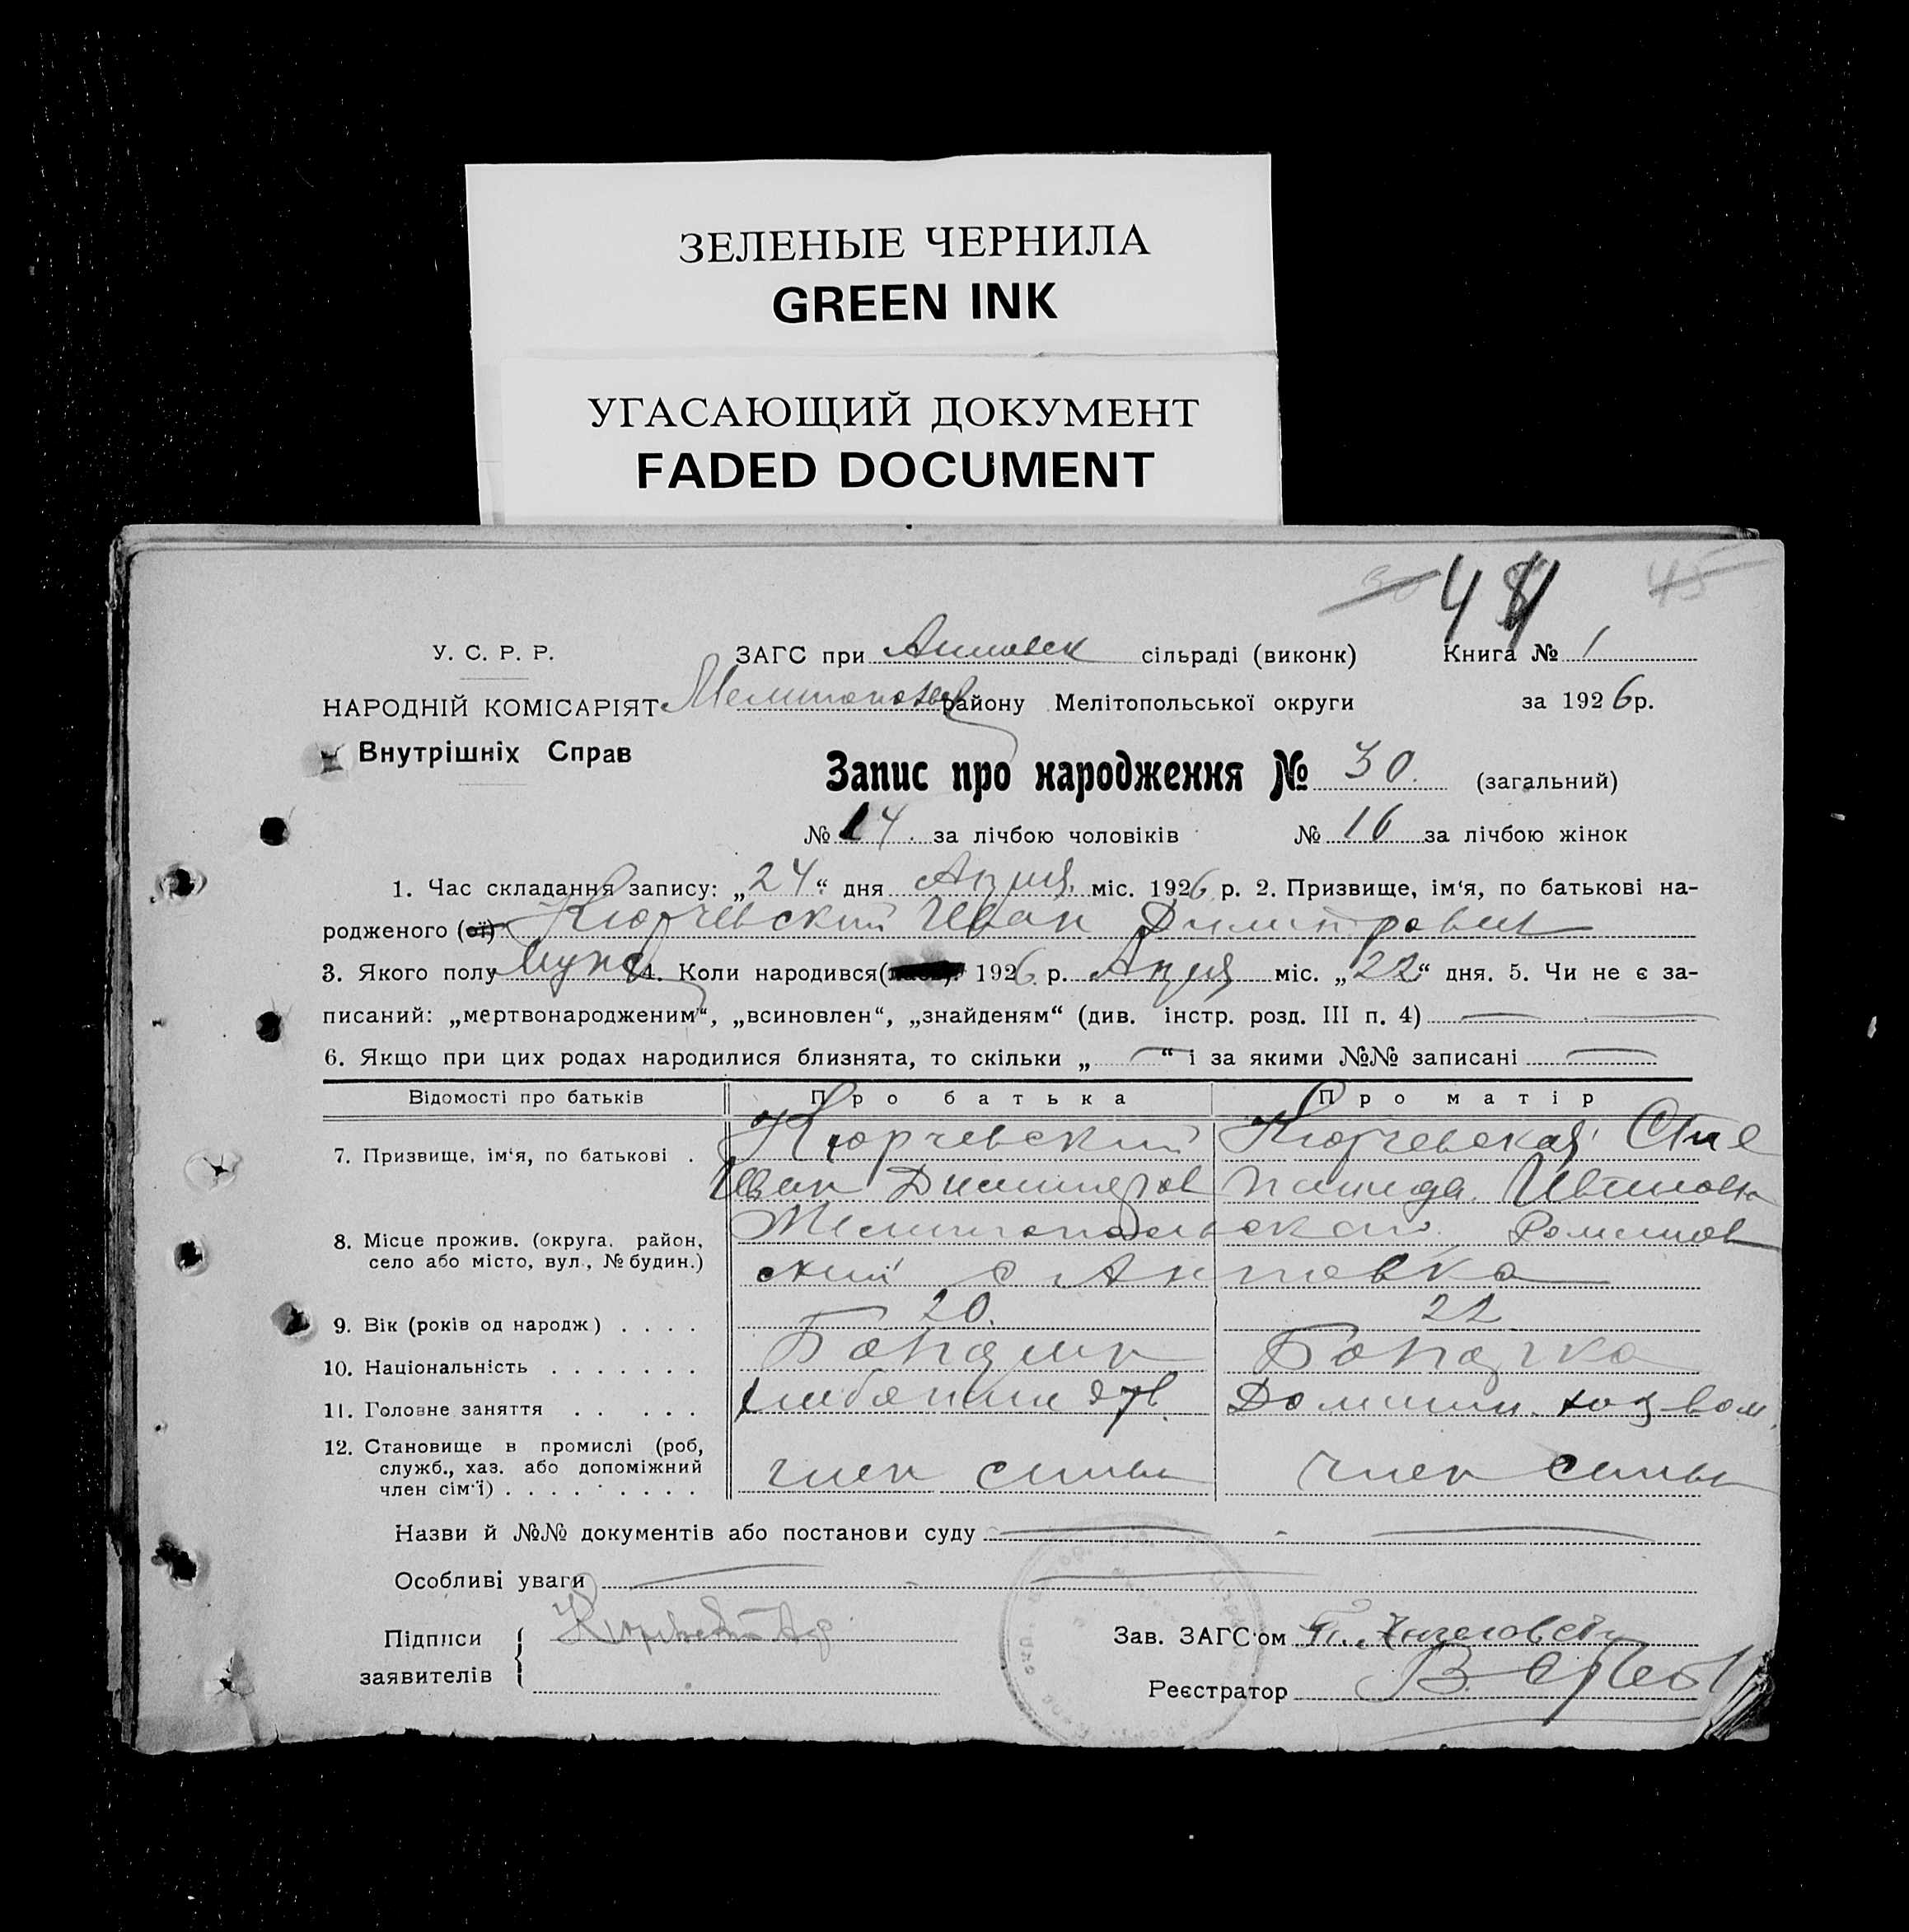 ЗЕЛЕНЫЕ ЧЕРНИЛА
GREEN INK
УГАСАЮЩИЙ ДОКУМЕНТ
FADED DOCUMENT
45
У. С. Р. Р. ЗАГС при сільраді (виконк) Книга № 1
НАРОДНІЙ КОМІСАРІЯТ району Мелітопольської округи за 1926 р.
Внутрішніх Справ
Запис про народження № 30. (загальний)
№ 14. за лічбою чоловіків № 16 за лічбою жінок
1. Час складання запису: „24“ дня Апреля міс. 1926 р. 2. Призвище, ім‘я, по батькові на-
родженого (ої) Кюрчевский Иван Димитрович
3. Якого полу Муж 4. Коли народився 1926 р. Апреля міс. „22“ дня. 5. Чи не є за-
писаний: „мертвонародженим“, „всиновлен“, „знайденям“ (див. інстр. розд. III п. 4)
6. Якщо при цих родах народилися близнята, то скільки „ — “ і за якими №№ записані —
Відомості про батьків Про батька Про матір
7. Призвище, ім‘я, по батькові . Кюрчевский Кюрчевская Сте
Иван Димитров панида Ивановна
8. Місце прожив. (округа, район, Мелитопольская Романов
село або місто, вул., № будин.) ский с Анновка
9. Вік (років од народж) . . . . 20. 22
10. Національність . . . . . . . Болгарин Болгарка
11. Головне заняття . . . . . хлебопашеств. Домашн. хозвом.
12. Становище в промислі (роб,
служб., хаз. або допоміжний член семьи член семьи
член сім‘ї) . . . . . . . . .
Назви й №№ документів або постанови суду
Особливі уваги
Підписи Зав. ЗАГС‘ом
заявителів Реєстратор